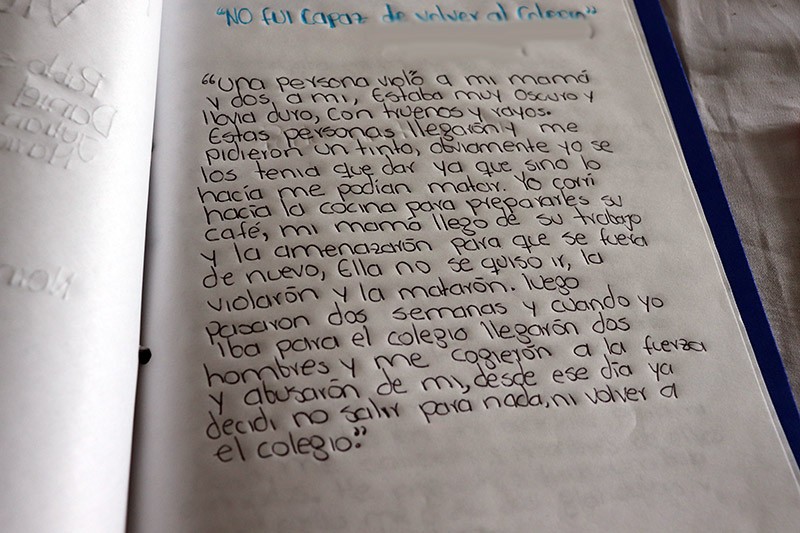 "NO FUI Capaz de volver al Colegio"
"una persona violó a mi mamá
y dos, a mi, Estaba muy oscuro y
llovia duro, con truenos y rayos.
Estas personas llegarón y me
pidieron un tinto, obviamente yo se
los tenia que dar ya que sino lo
hacía me podían matar. Yo corrí
hacia la cocina para prepararles su
café, mi mamá llego de su trabajo
y la amenazarón para que se fuera
de nuevo, Ella no se quiso ir, la
violarón y la matarón. luego
pasaron dos semanas y cuando yo
iba para el colegio llegarón dos
hombres y me cogierón a la fuerza
y abusarón de mi, desde ese día ya
decidi no salir para nada, ni volver a
el colegio."